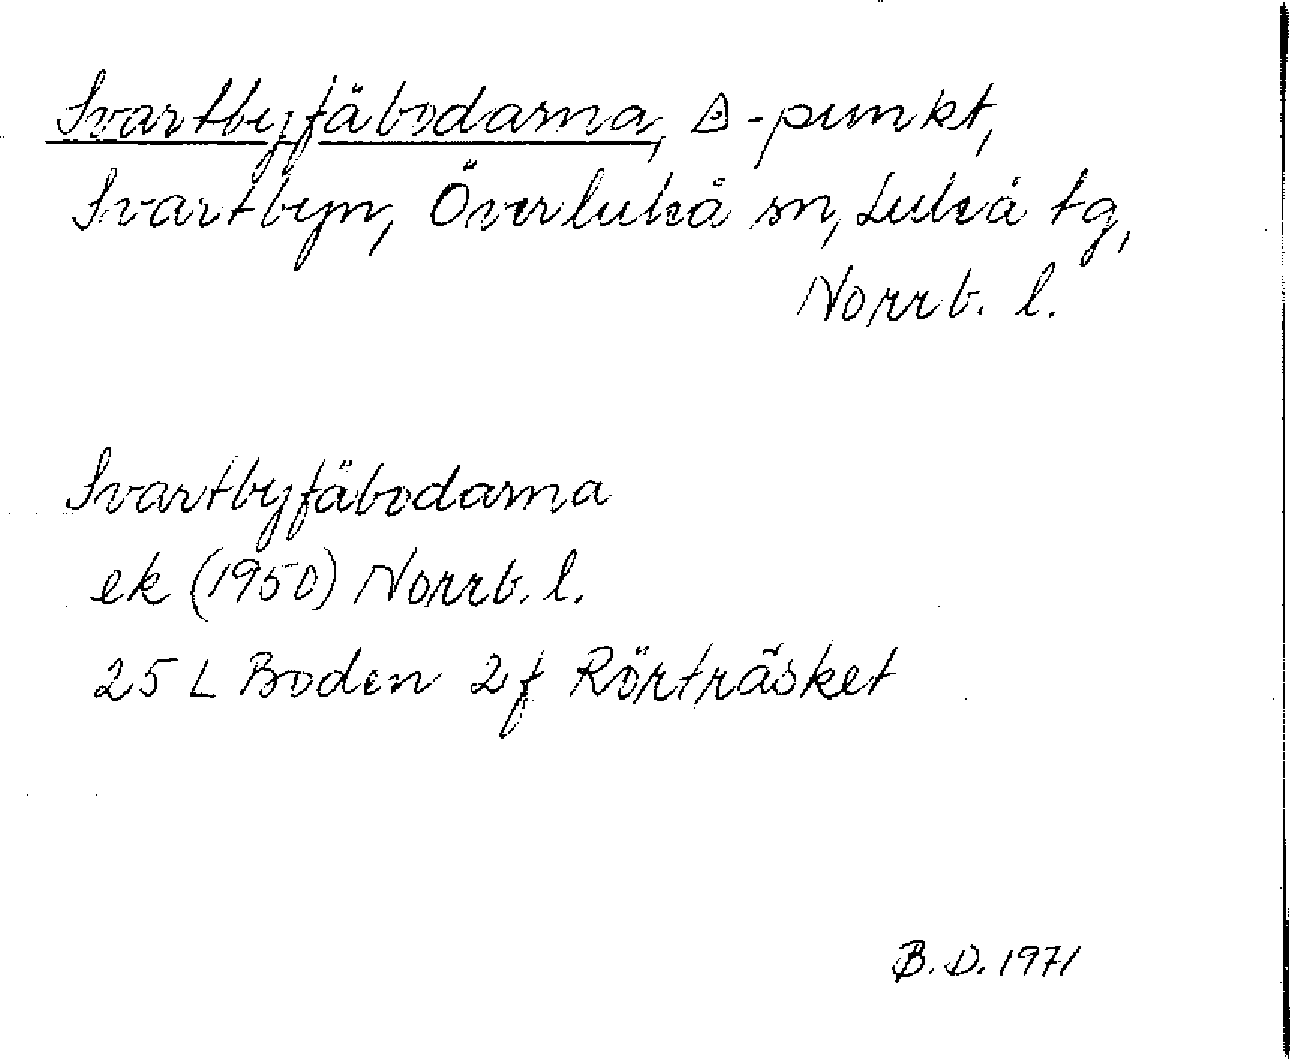 Svartbyfäbodarna, △-punkt,
Svartbyn, Överluleå sn, Luleå tg,
Norrb. l.
Svartbyfäbodarna
ek (1950) Norrb. l.
25 L Boden 2f Rörträsket
B.D. 1971